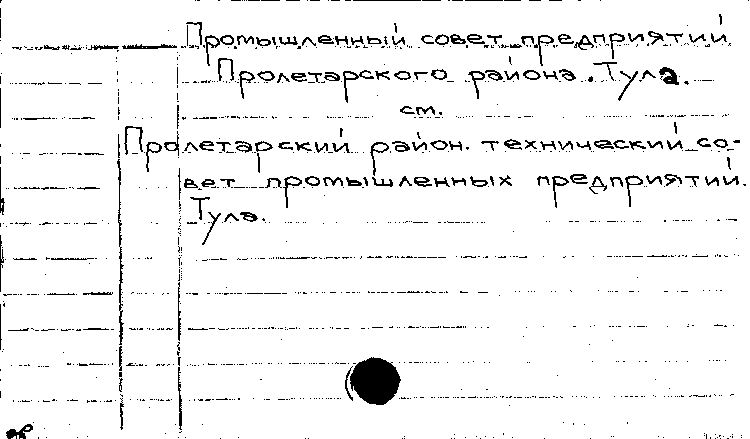 Промышленный совет предприятий
Пролетарского района. Тула.
см.
Пролетарский район. технический со-
вет промышленных предприятий.
Тула.